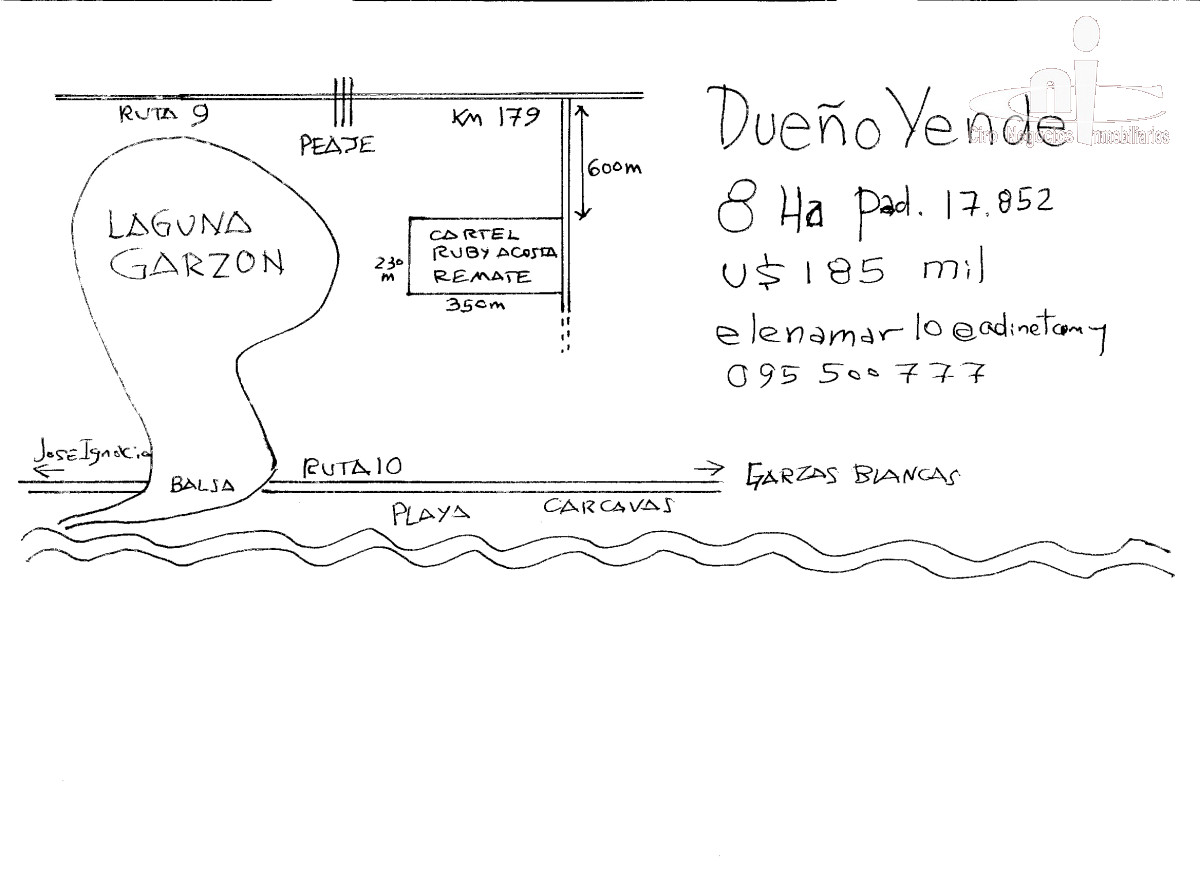 RUTA 9
PEAJE
KM 179
600m
LAGUNA
GARZON
CARTEL
RUBY ACOSTA
REMATE
230
m
350m
José Ignacio
BALSA
RUTA 10
GARZAS BLANCAS
PLAYA CARCAVAS
Dueño Vende
8 Ha Pad. 17.852
U$ 185 mil
095 500 777
Negocios Inmobiliarios